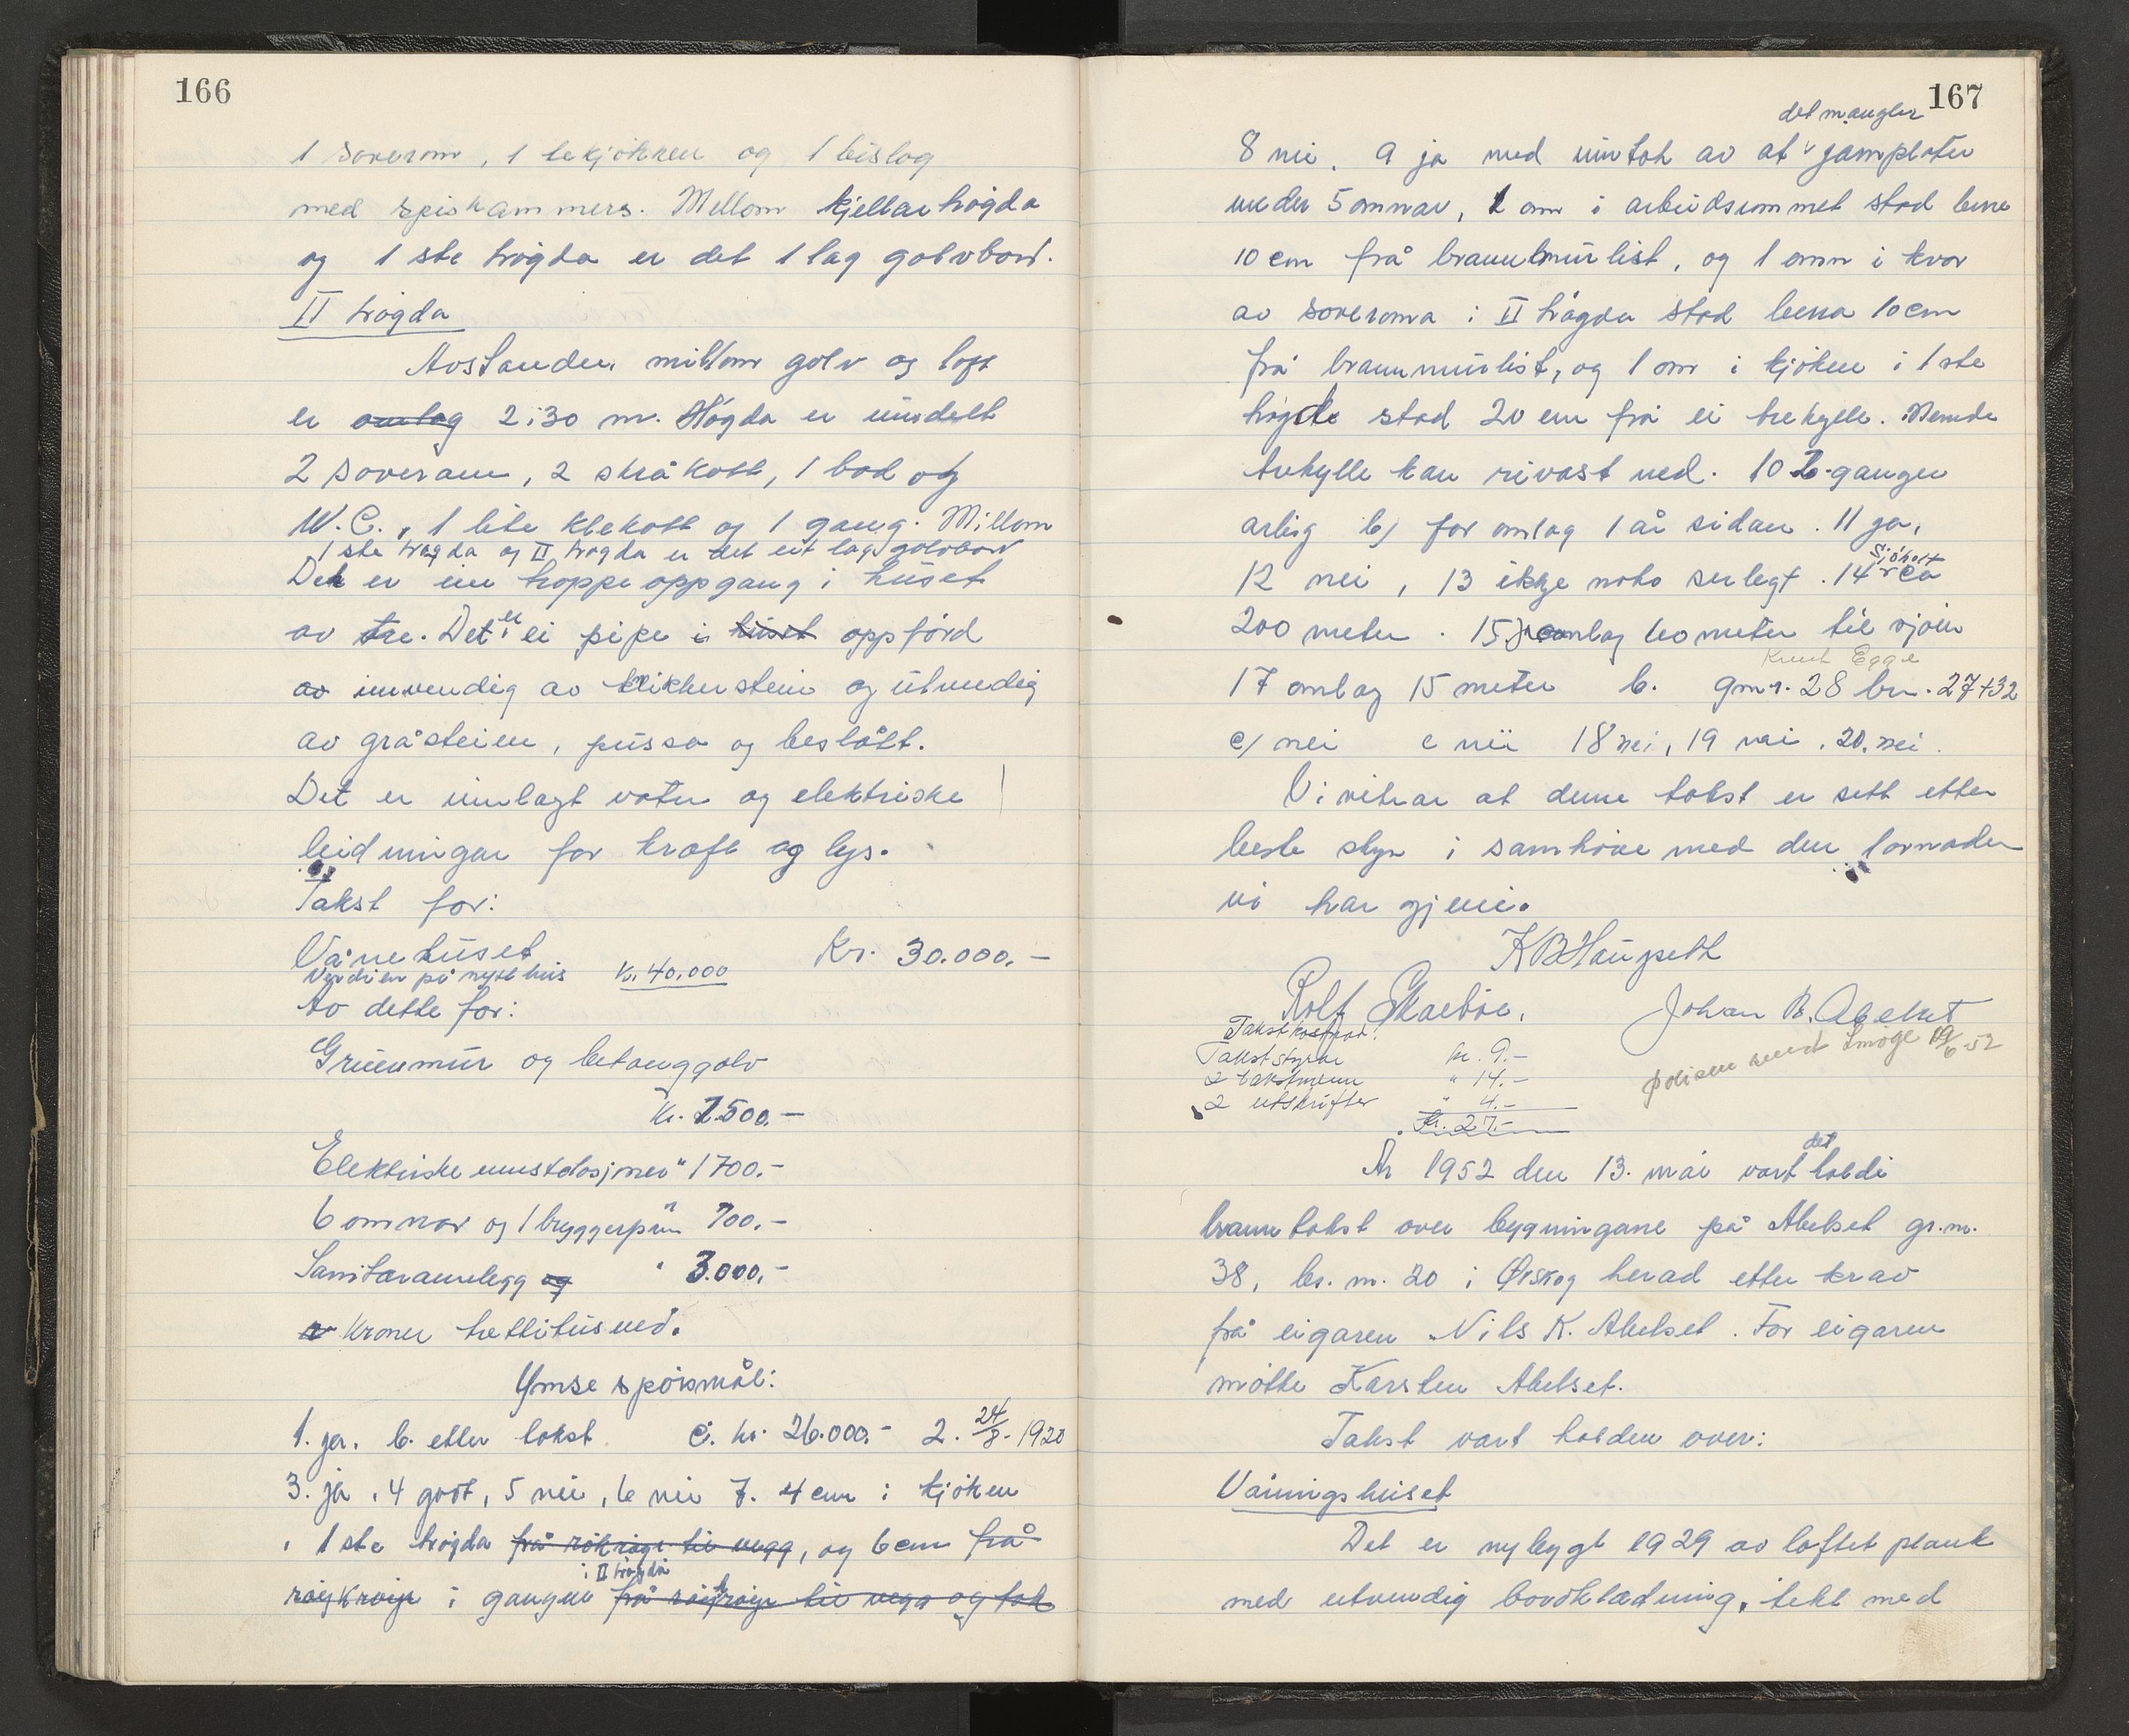 166
1 soverom, 1 tekjökken og 1 bislag
med spiskammers. Mellom kjellarhögda
og 1 ste högda er det 1 lag golvbord.
II högda
Avstanden millom golv og loft
er omlag 2,30 m. Högda er inndelt
2 soverom, 2 skråkott, 1 bad og
W.C., 1 lite klekott og 1 gang. Millom
1 ste högda og II högda er det eit lag golvbord
Det er ein troppeoppgang i huset
av tre. Det er ei pipe i huset oppförd
av innvendig av klinkerstein og utvendig
av gråstein, pussa og beslått.
Det er innlagt vatn og elektriske
leidningar for kraft og lys.
Takst for:
Vånehuset Kr. 30.000.-
Verdien på nytt hus kr. 40.000
Av dette for:
Grunnmur og betonggolv
kr. 2500.-
Elektriske innstalasjoner " 1700.-
6 omnar og 1 bryggerpanne " 700.-
Sanitæranlegg og " 3.000.-
Kroner trettitusund.
Ymse spörsmål:
1. ja. b. etter takst c. kr. 26.000.- 2. 24/8-1920
3. ja, 4 godt, 5 nei, 6 nei 7. 4 cm i kjöken
i 1 ste högda frå rökröyr til vegg, og 6 cm frå
i II högda
röykröyr i gangen frå röykröyr til vegg og tak
167
det mangler
8 nei. 9 ja med unntak av at v jarnplater
under 5 omnar, 1 omn i arbeidsrommet stod berre
10 cm frå brannmurlist, og 1 omn i kvar
av soveroma i II högda stod berra 10 cm
frå brannmurlist, og 1 omn i kjöken i 1 ste
högde stod 20 cm frå ei trehylle. Nemde
trehylle kan rivast ned. 10 2-gangen
årlig b/ for omlag 1 år sidan. 11 ja,
Sjöholt
12 nei, 13 ikkje noko serlegt. 14 v ca
200 meter. 15 omlag 60 meter til sjöen
Knut Egge
17 omlag 15 meter b. gnr. 28 bn. 27+32
c/ nei e nei 18 nei, 19 nei, 20. nei.
Vi vitnar at denne takst er sett etter
beste skyn i samhöve med den lovnaden
vi har gjeve.
K B Haugseth
Rolf Skaeböe. Johan B. Abelset
Takstkostnad:
Takststyrar kr. 9.-
2 takstmenn " 14.-
2 utskrifter " 4.-
Kr. 27.-
polisen sendt Smöge 19/6-52
År 1952 den 13. mai vart det haldi
branntakst over bygningane på Abelset gr.nr.
38, br. nr. 20 i Ørskog herad etter krav
frå eigaren Nils K. Abelset. For eigaren
mötte Karsten Abelset.
Takst vart halden over:
Våningshuset
Det er nybygt 1929 av laftet plank
med utvendig bordklædning, tekt med